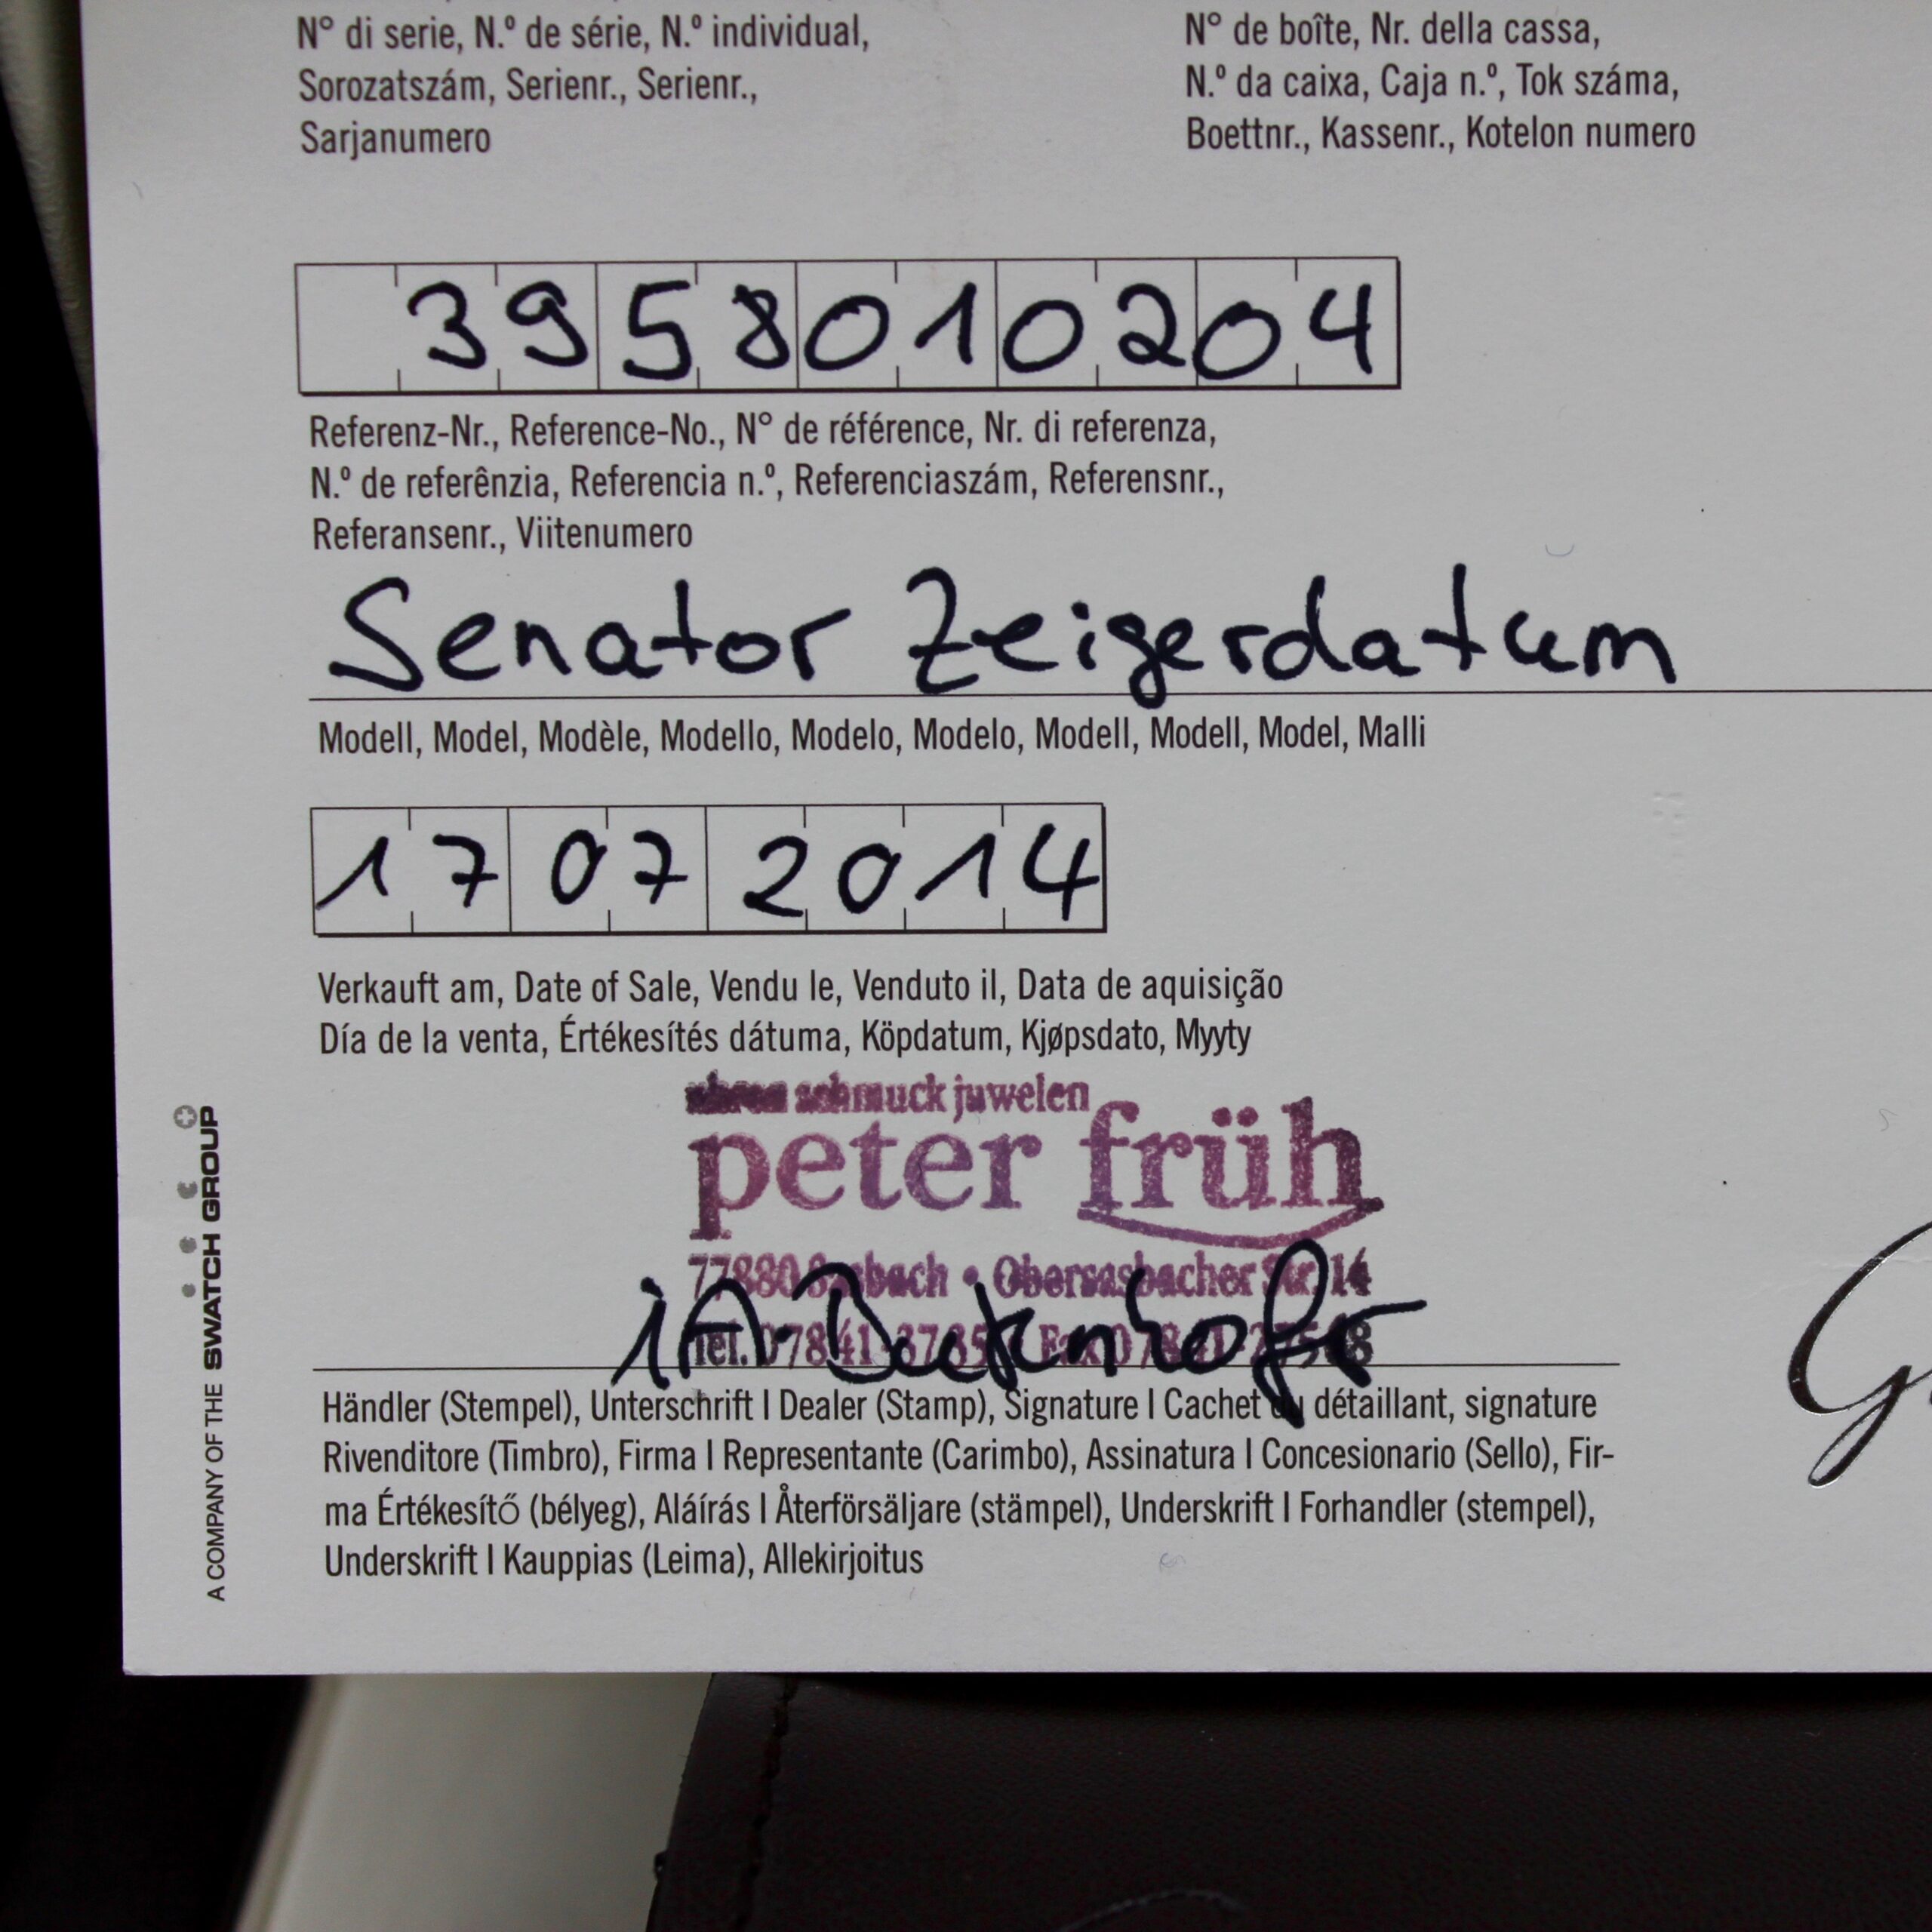 N° di serie, N.º de série, N.º individual,
Sorozatszám, Serienr., Serienr.,
Sarjanumero
N° de boîte, Nr. della cassa,
N.º da caixa, Caja n.º, Tok száma,
Boettnr., Kassenr., Kotelon numero
3958010204
Referenz-Nr., Reference-No., N° de référence, Nr. di referenza,
N.º de referênzia, Referencia n.º, Referenciaszám, Referensnr.,
Referansenr., Viitenumero
Senator Zeigerdatum
Modell, Model, Modèle, Modello, Modelo, Modelo, Modell, Modell, Model, Malli
17 07 2014
Verkauft am, Date of Sale, Vendu le, Venduto il, Data de aquisição
Día de la venta, Értékesítés dátuma, Köpdatum, Kjøpsdato, Myyty
uhren schmuck juwelen
peter früh
77880 Sasbach • Obersasbacher Str. 14
Tel. Fax
Händler (Stempel), Unterschrift I Dealer (Stamp), Signature I Cachet du détaillant, signature
Rivenditore (Timbro), Firma I Representante (Carimbo), Assinatura I Concesionario (Sello), Fir-
ma Értékesítő (bélyeg), Aláírás I Återförsäljare (stämpel), Underskrift I Forhandler (stempel),
Underskrift I Kauppias (Leima), Allekirjoitus
A COMPANY OF THE SWATCH GROUP
G